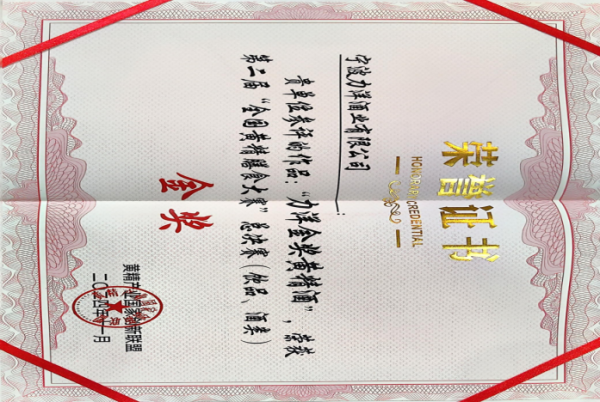 荣誉证书
HONORARY CREDENTIAL
宁波力洋酒业有限公司：
贵单位参评的作品：“力洋金奖黄精酒”，荣获
第二届“全国黄精膳食大赛”总决赛（饮品、酒类）
金奖
黄精产业国家创新联盟
二〇二四年十一月